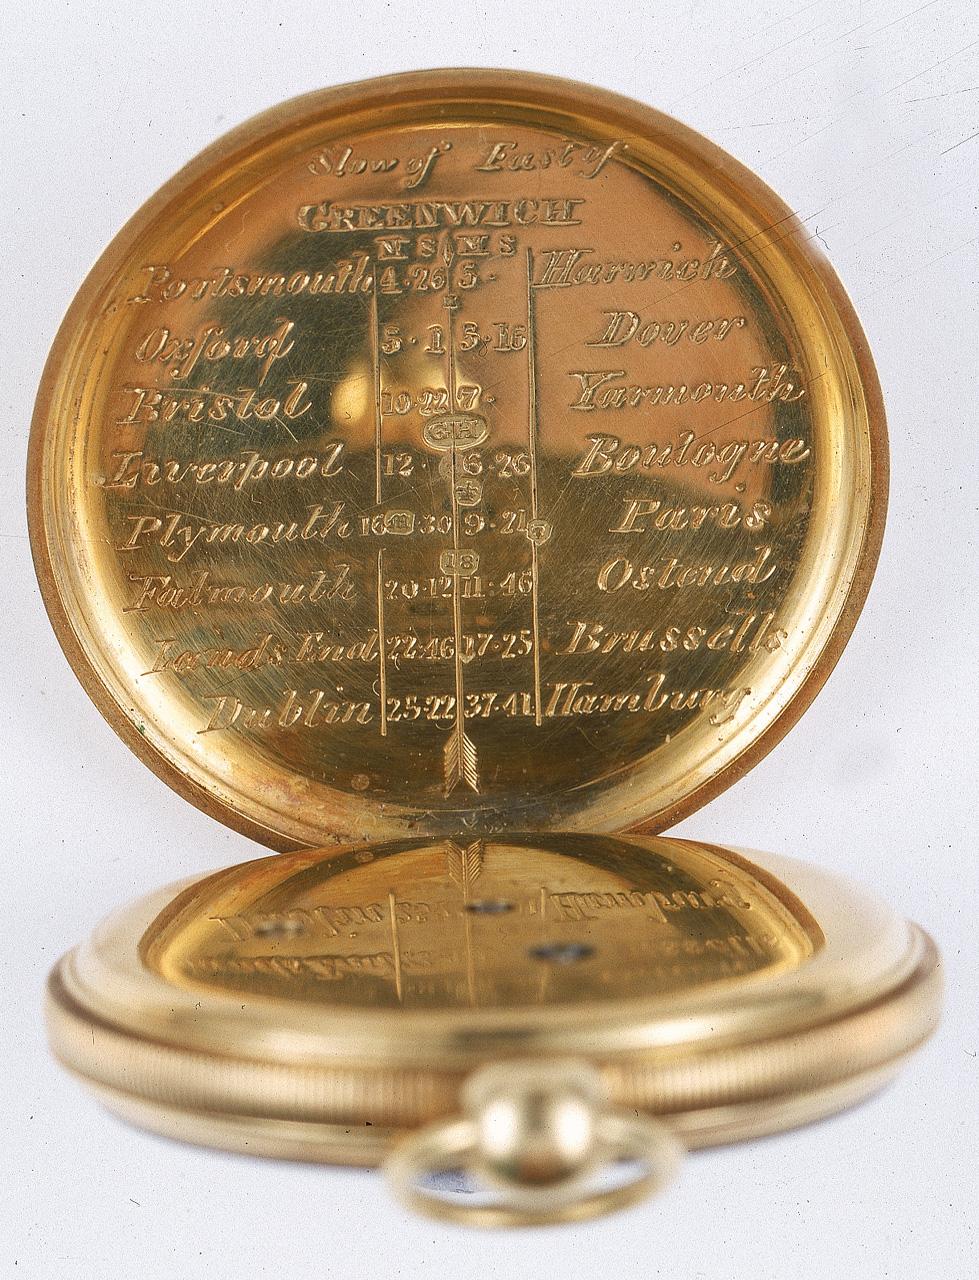 Slow of East of
GREENWICH
M S M S
Portsmouth 4·26 5· Harwich
Oxford 5·1 5·15 Dover
Bristol 10·22 7· Yarmouth
GH
Liverpool 12· 6·26 Boulogne
Plymouth 16·30 9·21 Paris
18
Falmouth 20·12 11:46 Ostend
Lands End 22·46 17·25 Brussells
Dublin 25·22 37·41 Hamburg